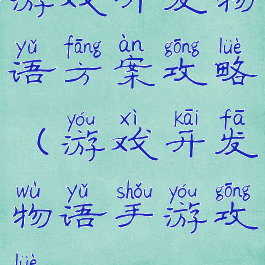 游戏开发物
yǔ fāng àn gōng lüè
语方案攻略
yóu xì kāi fā
(游戏开发
wù yǔ shǒu yóu gōng
物语手游攻
lüè